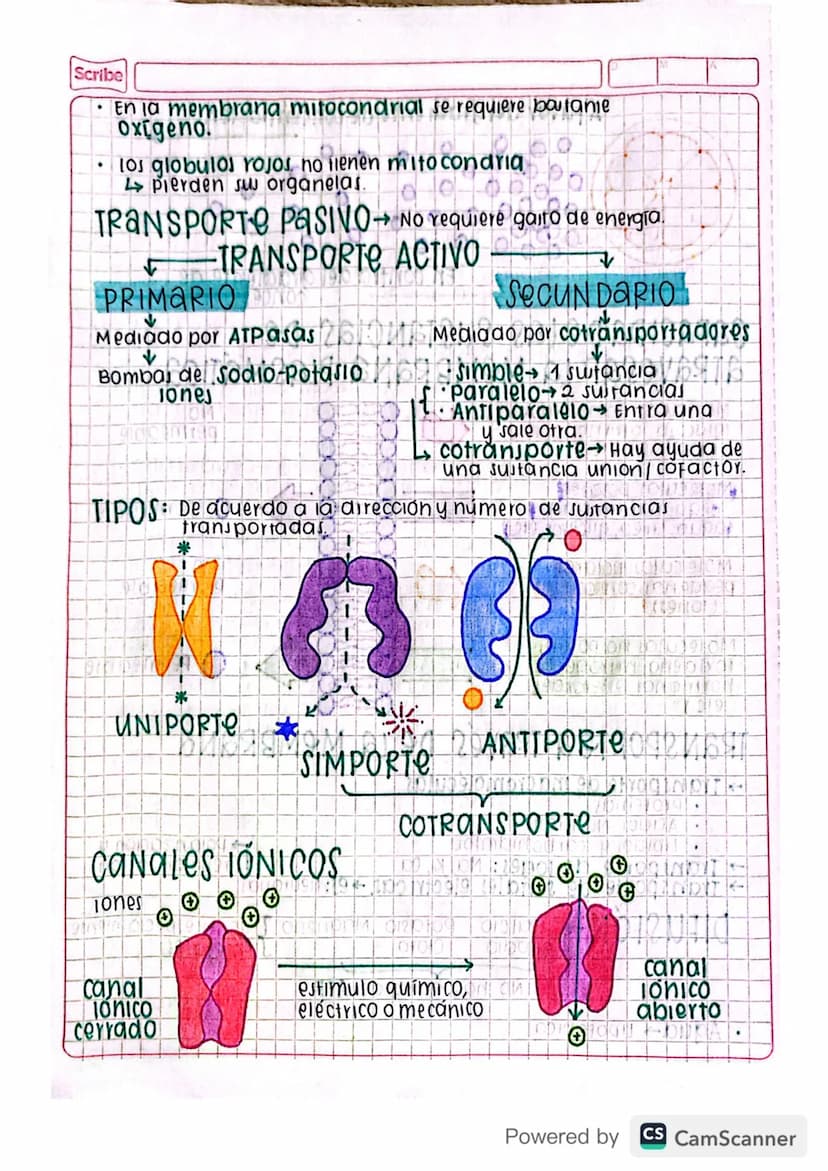 Scribe
• En la membrana mitocondrial se requiere bastante
oxígeno.
• Los globulos rojos no tienen mitocondria
↳ Pierden sus organelas.
TRANSPORTE PASIVO → No requiere gasto de energía.
TRANSPORTE ACTIVO
PRIMARIO
SECUNDARIO
Mediado por ATPasas
Mediado por cotransportadores
Bombas de sodio-potasio
iones
• Simple → 1 sustancia
• Paralelo → 2 sustancias
• Antiparalelo → Entra una
y sale otra.
cotransporte → Hay ayuda de
una sustancia union/cofactor.
TIPOS: De acuerdo a la dirección y número de sustancias
transportadas
UNIPORTE
SIMPORTE
ANTIPORTE
COTRANSPORTE
CANALES IÓNICOS
iones
canal
iónico
cerrado
estimulo químico,
eléctrico o mecánico
canal
iónico
abierto
Powered by CS CamScanner